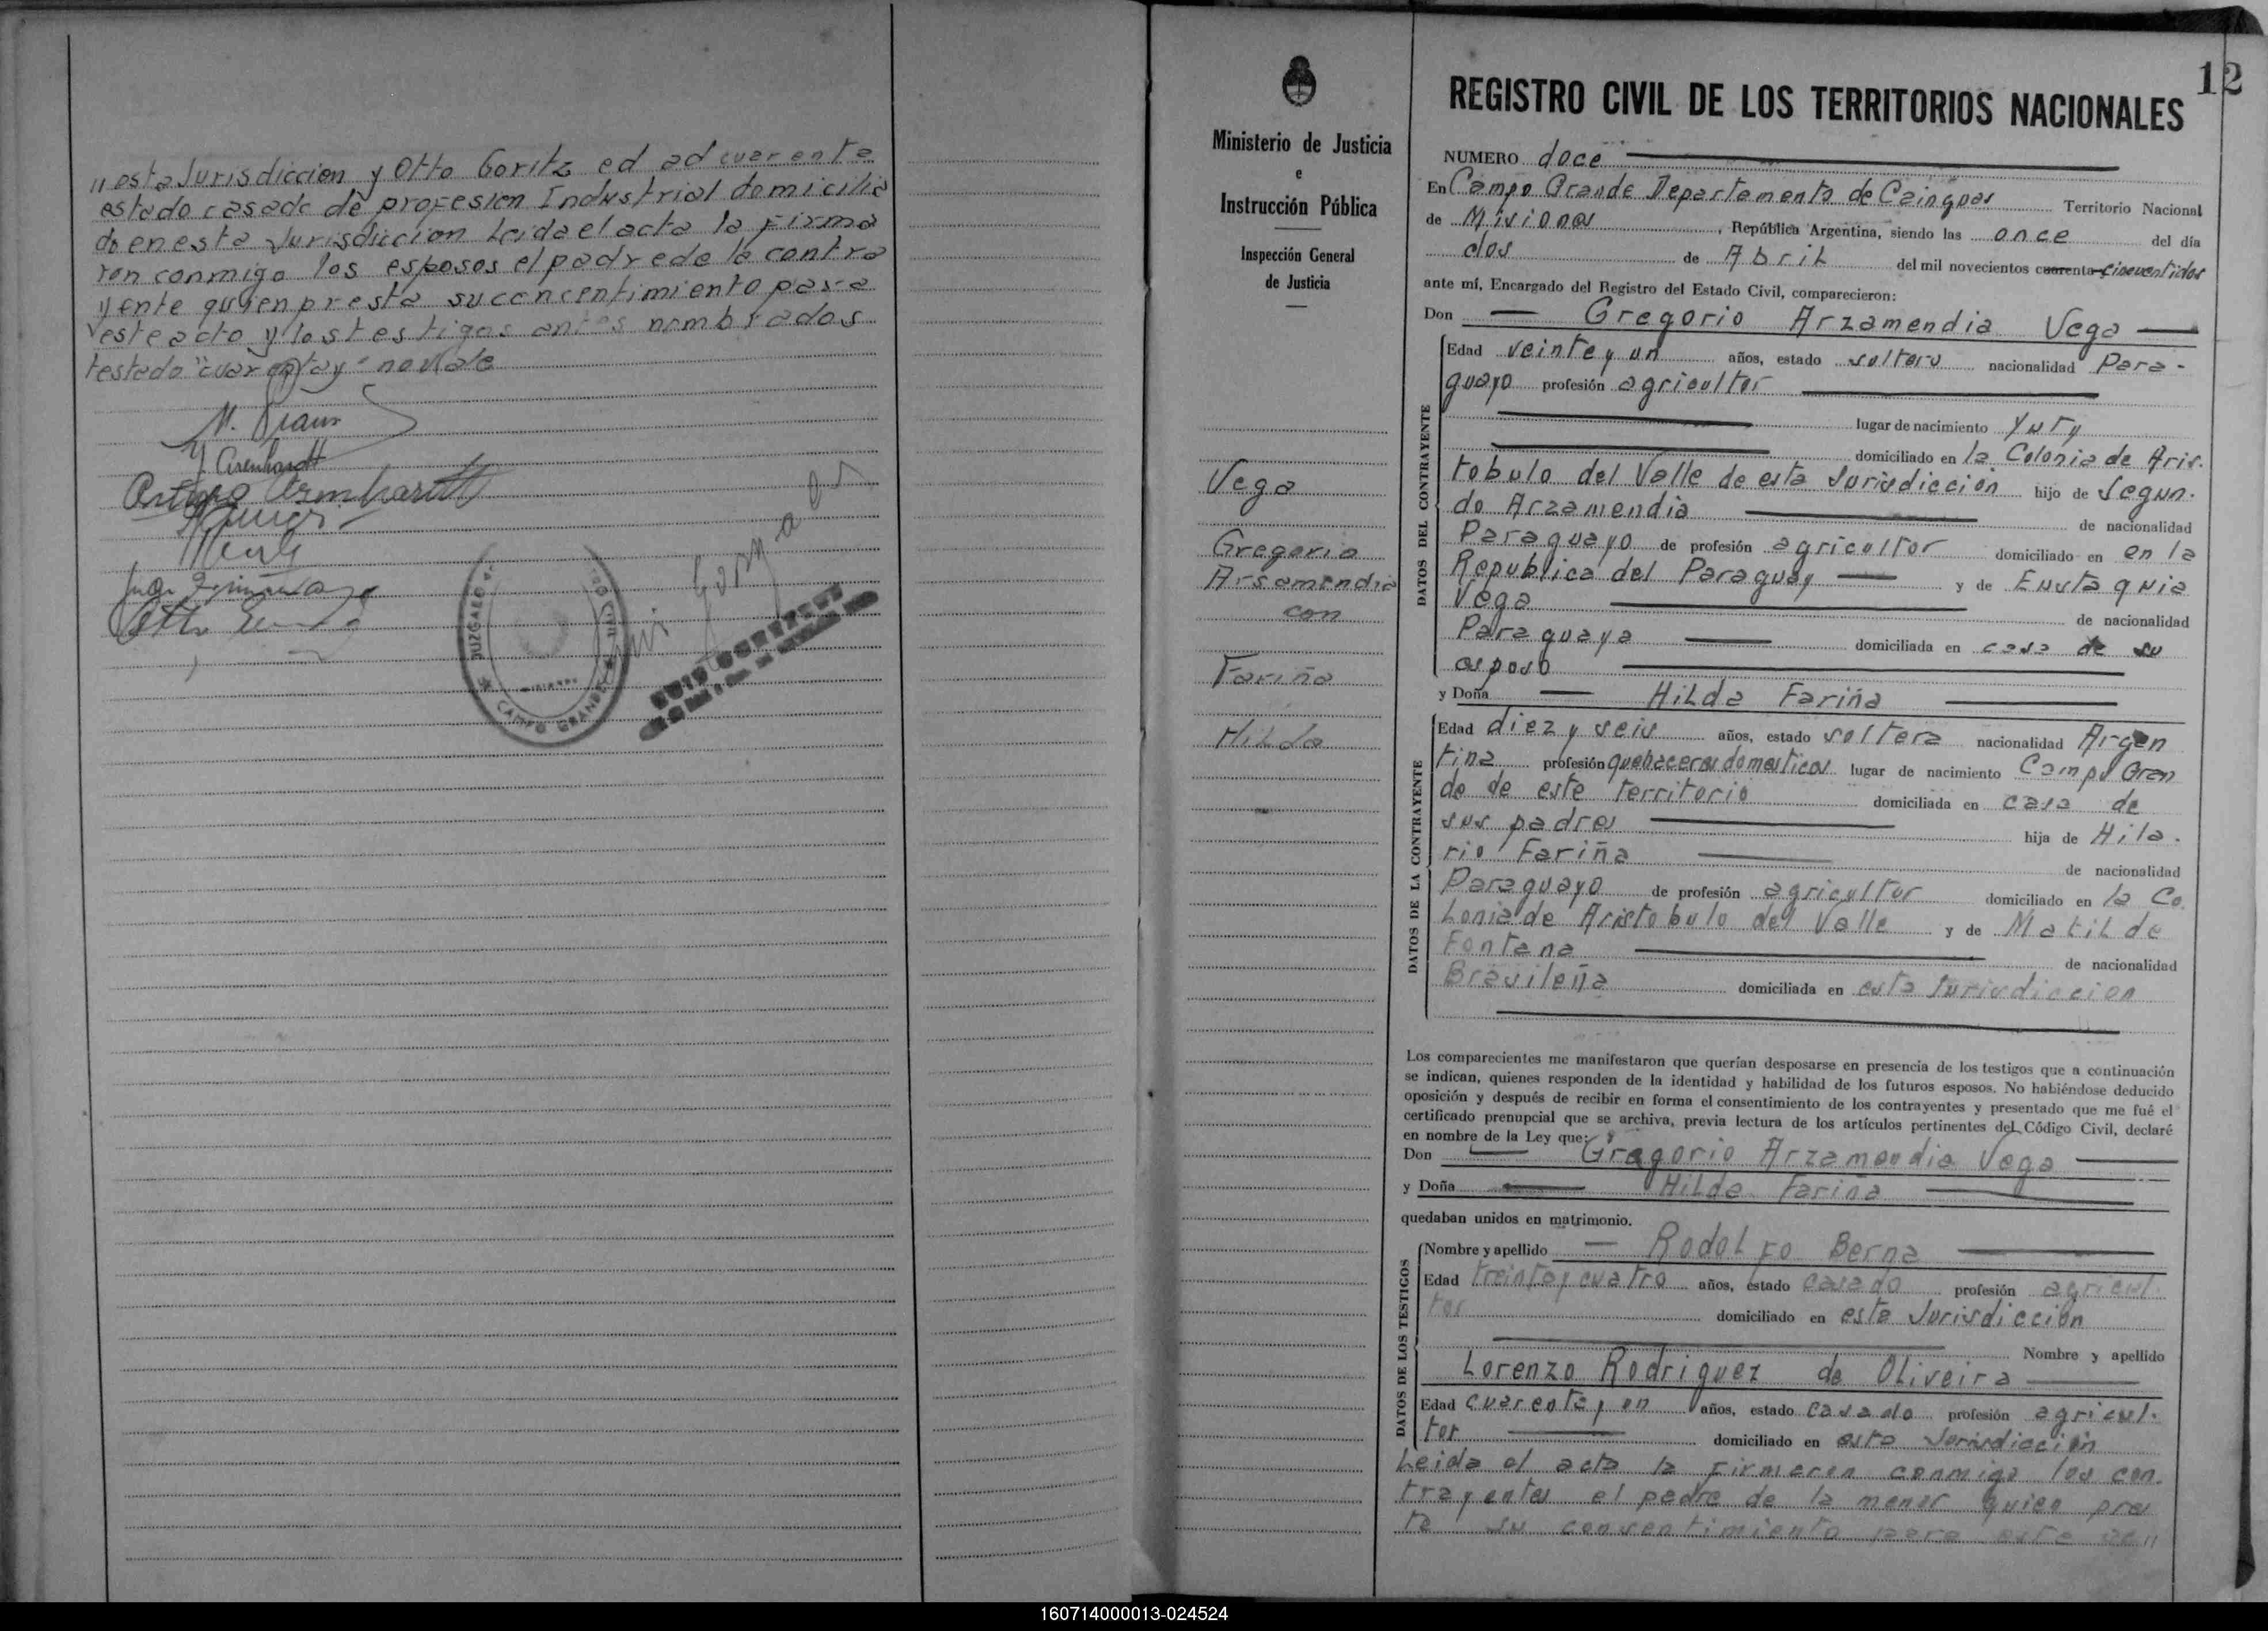 "esta Jurisdiccion y Otto Goritz ed ad cuarenta
estado casado de profesion Industrial domicilia
do en esta Jurisdiccion Leida el acta la firma
ron conmigo los esposos el padre de la contra
yente quien presta su concentimiento para
este acto y los testigos antes nombrados
testado "cuarenta y" no vale
JUZGADO
CAMPO GRANDE
12
Ministerio de Justicia
e
Instrucción Pública
Inspección General
de Justicia
Vega
Gregorio
Arsamendia
con
Fariña
Hilda
REGISTRO CIVIL DE LOS TERRITORIOS NACIONALES
NUMERO doce
En Campo Grande Departamento de Cainguas Territorio Nacional
de Misiones, República Argentina, siendo las once del día
dos de Abril del mil novecientos cuarenta cincuentidos
ante mí, Encargado del Registro del Estado Civil, comparecieron:
Don Gregorio Arzamendia Vega
DATOS DEL CONTRAYENTE
Edad veinte y un años, estado soltero nacionalidad Para-
guayo profesión agricultor
lugar de nacimiento Yuty
domiciliado en la Colonia de Aris-
tobulo del Valle de esta Jurisdiccion hijo de Segun-
do Arzamendia de nacionalidad
Paraguayo de profesión agricultor domiciliado en en la
Republica del Paraguay y de Eustaquia
Vega de nacionalidad
Paraguaya domiciliada en casa de su
esposo
y Doña Hilda Fariña
DATOS DE LA CONTRAYENTE
Edad diez y seis años, estado soltera nacionalidad Argen
tina profesión quehaceres domesticos lugar de nacimiento Campo Gran
de de este territorio domiciliada en casa de
sus padres hija de Hila-
rio Fariña de nacionalidad
Paraguayo de profesión agricultor domiciliado en la Co
lonia de Aristobulo del Valle y de Matilde
Fontana de nacionalidad
Brasileña domiciliada en esta Jurisdiccion
Los comparecientes me manifestaron que querían desposarse en presencia de los testigos que a continuación
se indican, quienes responden de la identidad y habilidad de los futuros esposos. No habiéndose deducido
oposición y después de recibir en forma el consentimiento de los contrayentes y presentado que me fué el
certificado prenupcial que se archiva, previa lectura de los artículos pertinentes del Código Civil, declaré
en nombre de la Ley que:
Don Gregorio Arzamendia Vega
y Doña Hilda Fariña
quedaban unidos en matrimonio.
DATOS DE LOS TESTIGOS
Nombre y apellido Rodolfo Berna
Edad treinta y cuatro años, estado casado profesión agricul-
tor domiciliado en esta Jurisdiccion
Nombre y apellido
Lorenzo Rodriguez de Oliveira
Edad cuarenta y un años, estado casado profesión agricul-
tor domiciliado en esta Jurisdiccion
Leida el acta la firmaron conmigo los con-
trayentes el padre de la menor quien pres
ta su consentimiento para este
160714000013-024524